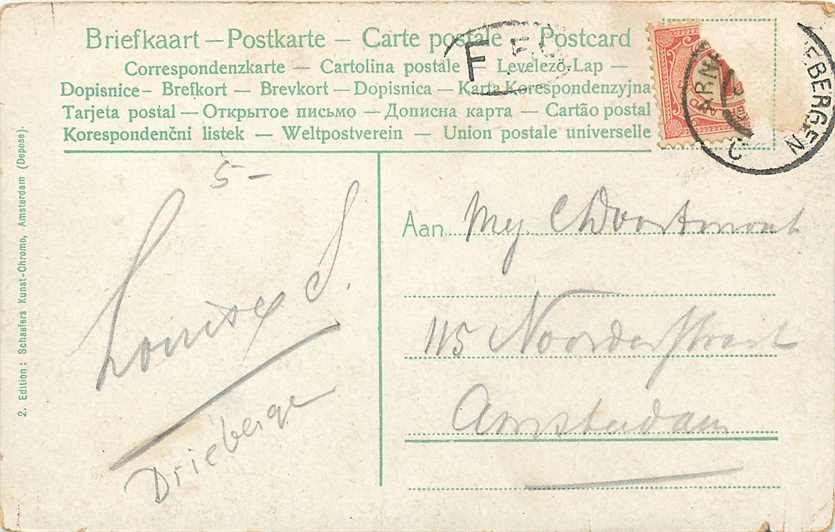 Briefkaart — Postkarte — Carte postale — Postcard
Correspondenzkarte — Cartolina postale — Levelező-Lap —
Dopisnice - Brefkort — Brevkort — Dopisnica — Karta Korespondenzyjna
Tarjeta postal — Открытое письмо — Дописна карта — Cartão postal
Korespondenční listek — Weltpostverein — Union postale universelle
F
ARNH
EBERGEN
5-
Louise S.
Drieberge
Aan Mej.
115 Noorderstraat
Amsterdam
2. Edition: Schaefers Kunst-Chromo, Amsterdam (Depose).